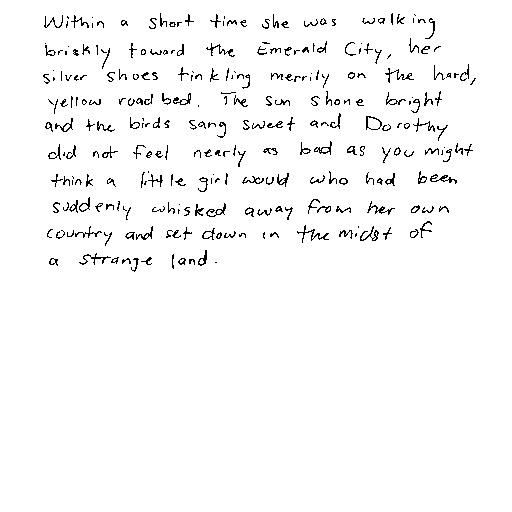 Within a short time she was walking
briskly toward the Emerald City, her
silver shoes tinkling merrily on the hard,
yellow road bed. The sun shone bright
and the birds sang sweet and Dorothy
did not feel nearly as bad as you might
think a little girl would who had been
suddenly whisked away from her own
country and set down in the midst of
a strange land.